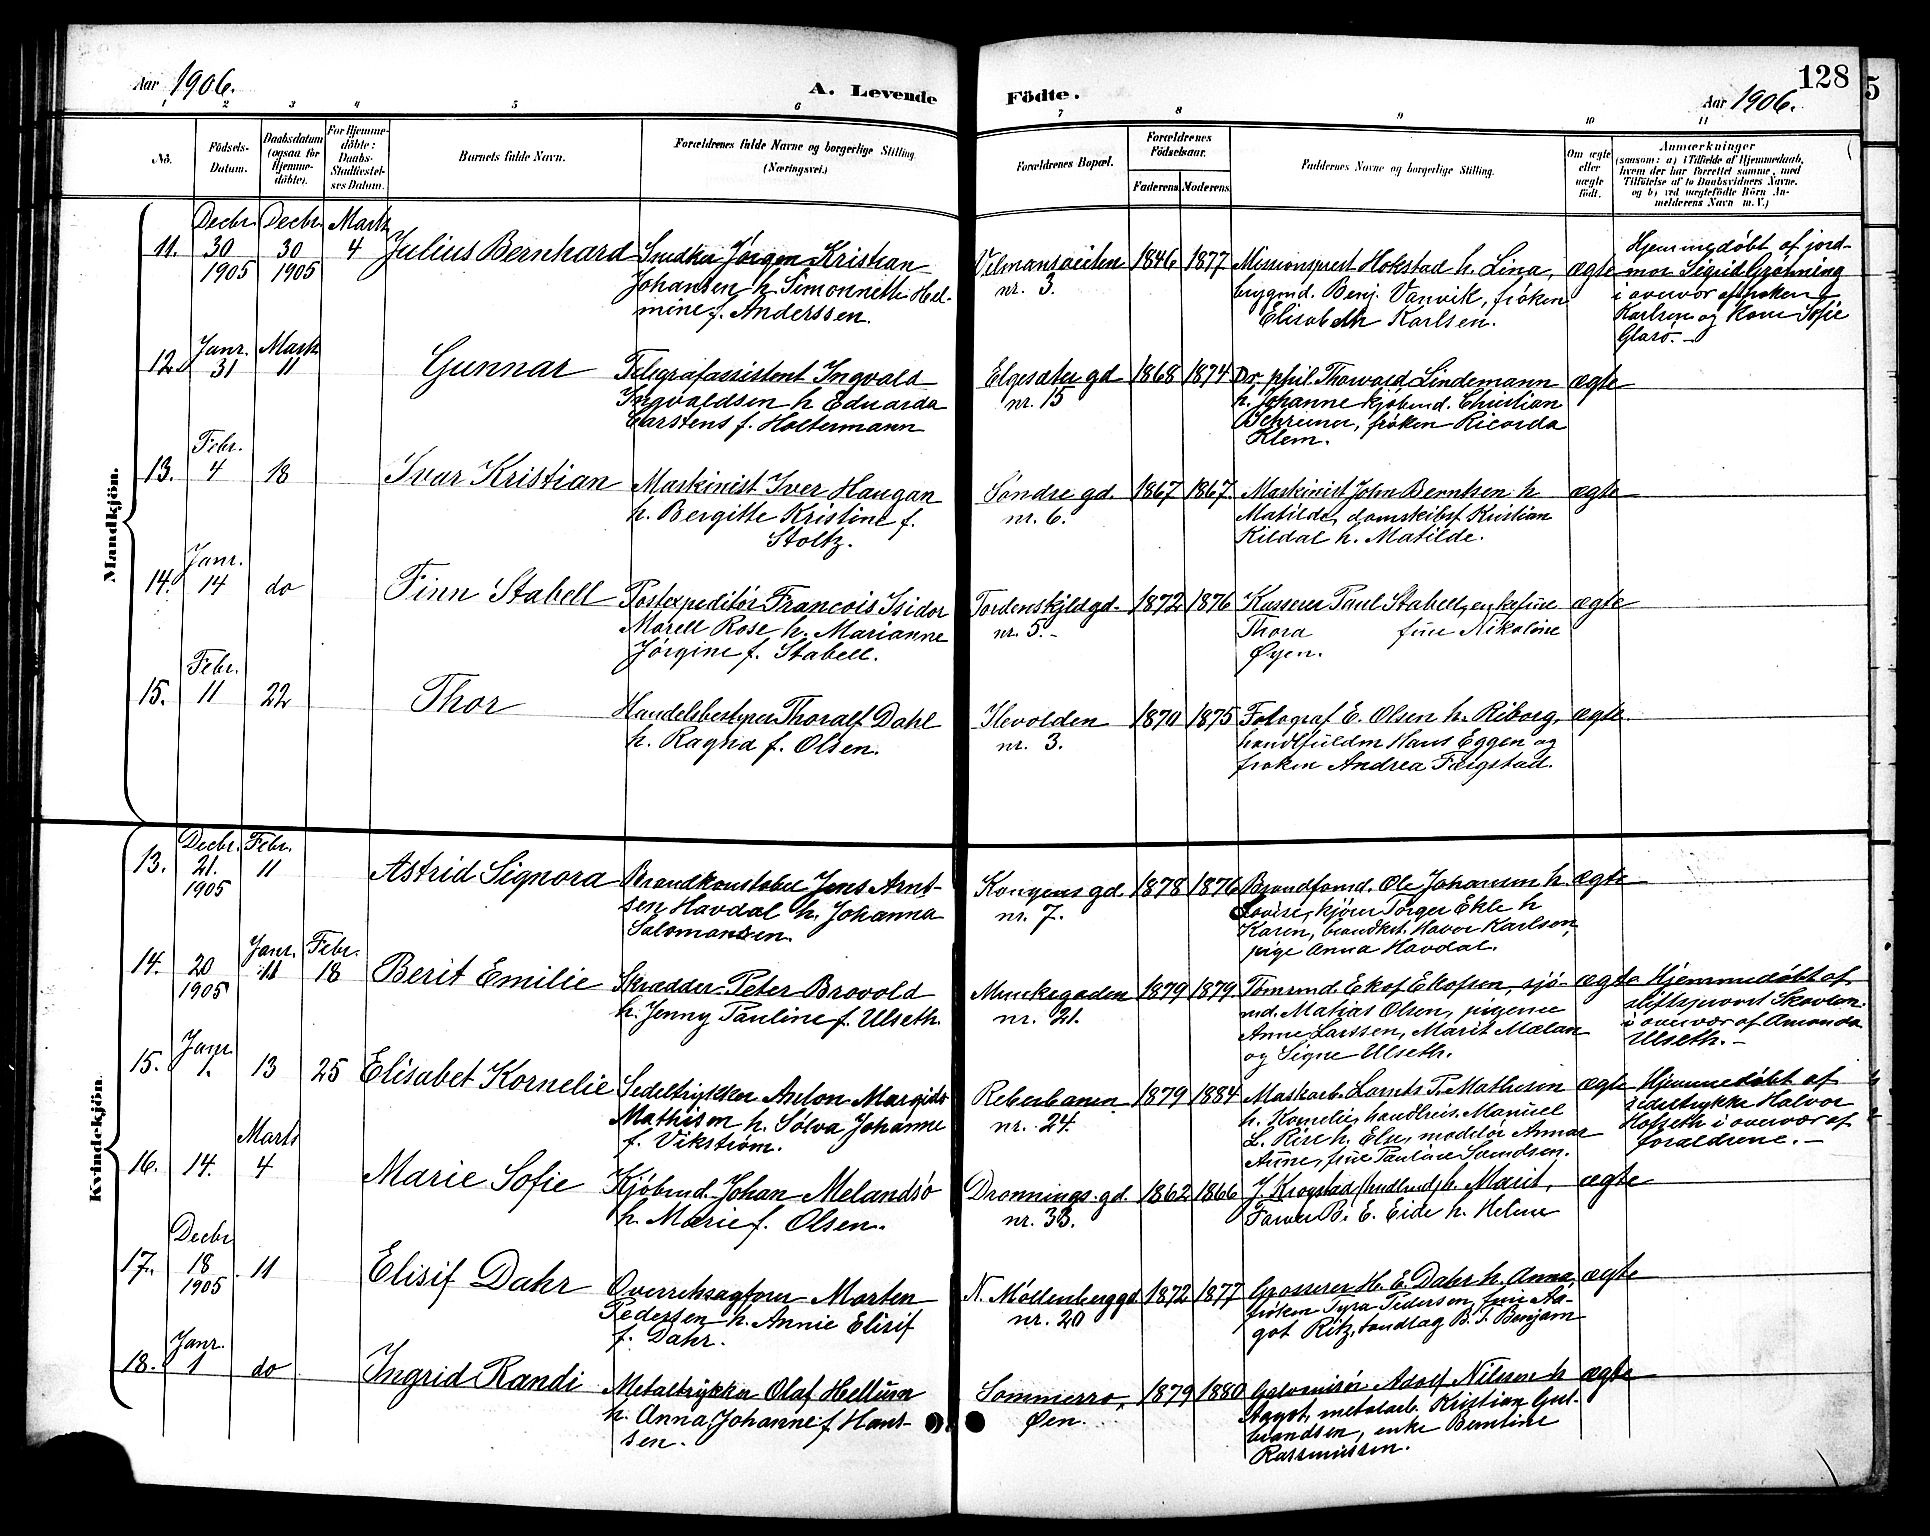 Aar 1906.
A. Levende
Födte.
128
Aar 1906.
5
1
2
3
4
5
6
7
8
9
10
11
No.
Födsels-
Datum.
Daabsdatum
(ogsaa for
Hjemme-
döbte).
For Hjemme-
döbte:
Daabs-
Stadfæstel-
ses Datum.
Barnets fulde Navn.
Forældrenes fulde Navne og borgerlige Stilling
(Næringsvei.)
Forældrenes Bopæl.
Forældrenes
Födselsaar.
Faderens.
Moderens.
Faddernes Navne og borgerlige Stilling.
Om ægte
eller
uægte
født.
Anmærkninger
(saasom: a) i Tilfælde af Hjemmedaab,
hvem der har forrettet samme, med
Tilföielse af to Daabsvidners Navne.
og b) ved uægtefödte Börn An-
melderens Navn m. V.)
Mandkjön.
11.
Decbr.
30
1905
Decbr.
30
1905
Marts
4
Julius Bernhard
Snedker Jørgen Kristian
Johansen h. Simonnette Hel-
mine f. Anderssen.
Vilmansveiten
nr. 3.
1846
1877
Missionsprest Hokstad h. Lina,
brygmd. Benj. Vanvik, frøken
Elisabeth Karlsen.
ægte
Hjemmedøbt af jord-
mor Sigrid Grøhning
i overvær af frøken
Karlsen og kone Sofie
Glarø.
12.
Janr.
31
Marts
11
Gunnar
Telegrafassistent Ingvald
Ingvaldsen h Eduarda
Carstens f. Holtermann
Elgesæter gd
nr. 15
1868
1874
Dr. phil. Thorvald Lindemann
h. Johanne kjøbmd. Christian
Schreiner, frøken Ricorda
Klem.
ægte
13.
Febr.
4
18
Ivar Kristian
Maskinist Iver Haugan
h. Bergitte Kristine f.
Stoltz.
Søndre gd.
nr. 6.
1867
1867
Maskinist John Berntsen h
Matilde, damskibsf Kristian
Kildal h. Matilde.
ægte
14.
Janr.
14
do
Finn Stabell
Postexpeditør Francois Isidor
Morell Rose h. Marianne
Jørgine f. Stabell.
Tordenskjoldgd.
nr. 5.
1872
1876
Kasserer Paul Stabell, enkefrue
Thora frue Nikoline
Øyen.
ægte
15.
Febr.
11
22
Thor
Handelsbestyrer Thoralf Dahl
h. Ragna f. Olsen.
Ilevolden
nr. 3.
1870
1875
Fotograf E. Olsen h. Riborg,
handlfuldm Hans Eggen og
frøken Andrea Færgstad.
ægte
Kvindekjön.
13.
Decbr.
21.
1905
Febr.
11
Astrid Signora
Brandkonstabel Jens Arnt-
sen Havdal h. Johanna
Salomonsen.
Kongens gd.
nr. 7.
1878
1876
Brandformd. Ole Johansen h.
Lovise, kjører Torger Ekle h
Karen, brandkst. Havor Karlson,
pige Anna Havdal.
ægte
14.
20
1905
Janr.
11
Febr.
18
Berit Emilie
Skrædder Peter Brovold
h. Jenny Pauline f. Ulseth.
Munkegaden
nr. 21.
1879
1879
Tømmd. Ekof Ekofsen, sjø-
md. Matias Olsen, pigerne
Anne Larssen, Marit Mælan
og Signe Ulseth.
ægte
Hjemmedøbt af
stiftsprovst Skavlan
i overvær af Amanda
Ulseth.
15.
Janr.
1.
13
25
Elisabet Kornelie
Sedeltrykker Anton Margido
Mathisen h. Solva Johanne
f. Vikstrøm.
Reberbanen
nr. 24.
1879
1884
Maskarb. Laurits P. Mathisen
h. Kornelie, handlreis. Manuel
L. Rise h. Elu, modelør Annar
Aune, frue Pauline Lundsen.
ægte
Hjemmedøbt af
sedeltrykke Halvor
Hofseth i overvær af
forældrene.
16.
14.
Marts
4
Marie Sofie
Kjøbmd. Johan Melandsø
h. Marie f. Olsen.
Dronnings. gd.
nr. 33.
1862
1866
J Krogstad (hndlmd) h. Marit,
Farver B. E. Eide h. Helene
ægte
17.
Decbr
18
1905
11
Elisif Dahr
Overretssagfører Morten
Pedersen h. Annie Elisif
f. Dahr.
N. Møllenberggd
nr. 20
1872
1877
Grosserer H. E. Dahr h. Anna,
frøken Tyra Pedersen, frue Aa-
got Ritz, tandlæg B. T. Benjam
ægte
18.
Janr.
1
do
Ingrid Randi
Metaltrykker Olaf Hellum
h. Anna Johanne f Hans-
sen.
Sommerro,
Øen.
1879
1880
Galvanisør Adolf Nilssen h
Aagot, metalarb. Kristian Gul-
brandsen, enke Berntine
Rassmussen.
ægte